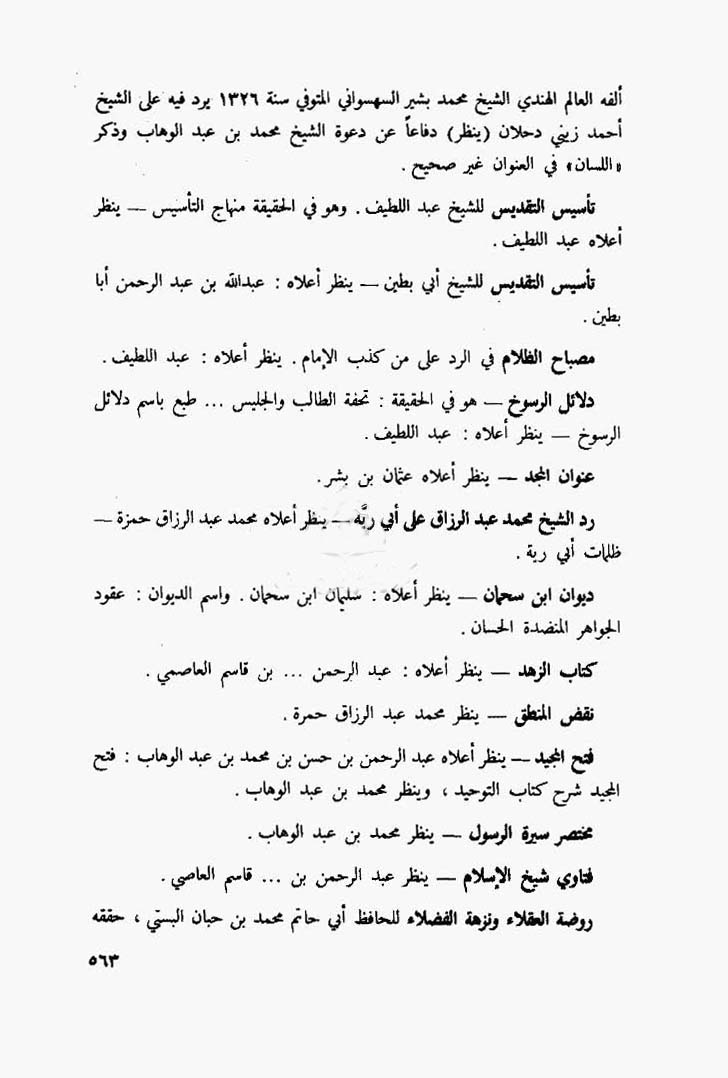 ألفه العالم الهندي الشيخ محمد بشير السهسواني المتوفي سنة ١٣٢٦ يرد فيه على الشيخ
أحمد زيني دحلان (ينظر) دفاعاً عن دعوة الشيخ محمد بن عبد الوهاب وذكر
«اللسان» في العنوان غير صحيح .
تأسيس التقديس للشيخ عبد اللطيف . وهو في الحقيقة منهاج التأسيس — ينظر
أعلاه عبد اللطيف .
تأسيس التقديس للشيخ أبي بطين — ينظر أعلاه : عبدالله بن عبد الرحمن أبا
بطين .
مصباح الظلام في الرد على من كذب الإمام . ينظر أعلاه : عبد اللطيف .
دلائل الرسوخ — هو في الحقيقة : تحفة الطالب والجليس ... طبع باسم دلائل
الرسوخ — ينظر أعلاه : عبد اللطيف .
عنوان المجد — ينظر أعلاه عثمان بن بشر .
رد الشيخ محمد عبد الرزاق على أبي ريَّه — ينظر أعلاه محمد عبد الرزاق حمزة —
ظلمات أبي رية .
ديوان ابن سحمان — ينظر أعلاه : سليمان ابن سحمان . واسم الديوان : عقود
الجواهر المنضدة الحسان .
كتاب الزهد — ينظر أعلاه : عبد الرحمن ... بن قاسم العاصمي .
نقض المنطق — ينظر محمد عبد الرزاق حمرة .
فتح المجيد — ينظر أعلاه عبد الرحمن بن حسن بن محمد بن عبد الوهاب : فتح
المجيد شرح كتاب التوحيد ، وينظر محمد بن عبد الوهاب .
مختصر سيرة الرسول — ينظر محمد بن عبد الوهاب .
فتاوي شيخ الإسلام — ينظر عبد الرحمن بن ... قاسم العاصي .
روضة العقلاء ونزهة الفضلاء للحافظ أبي حاتم محمد بن حبان البستي ، حققه
٥٦٣